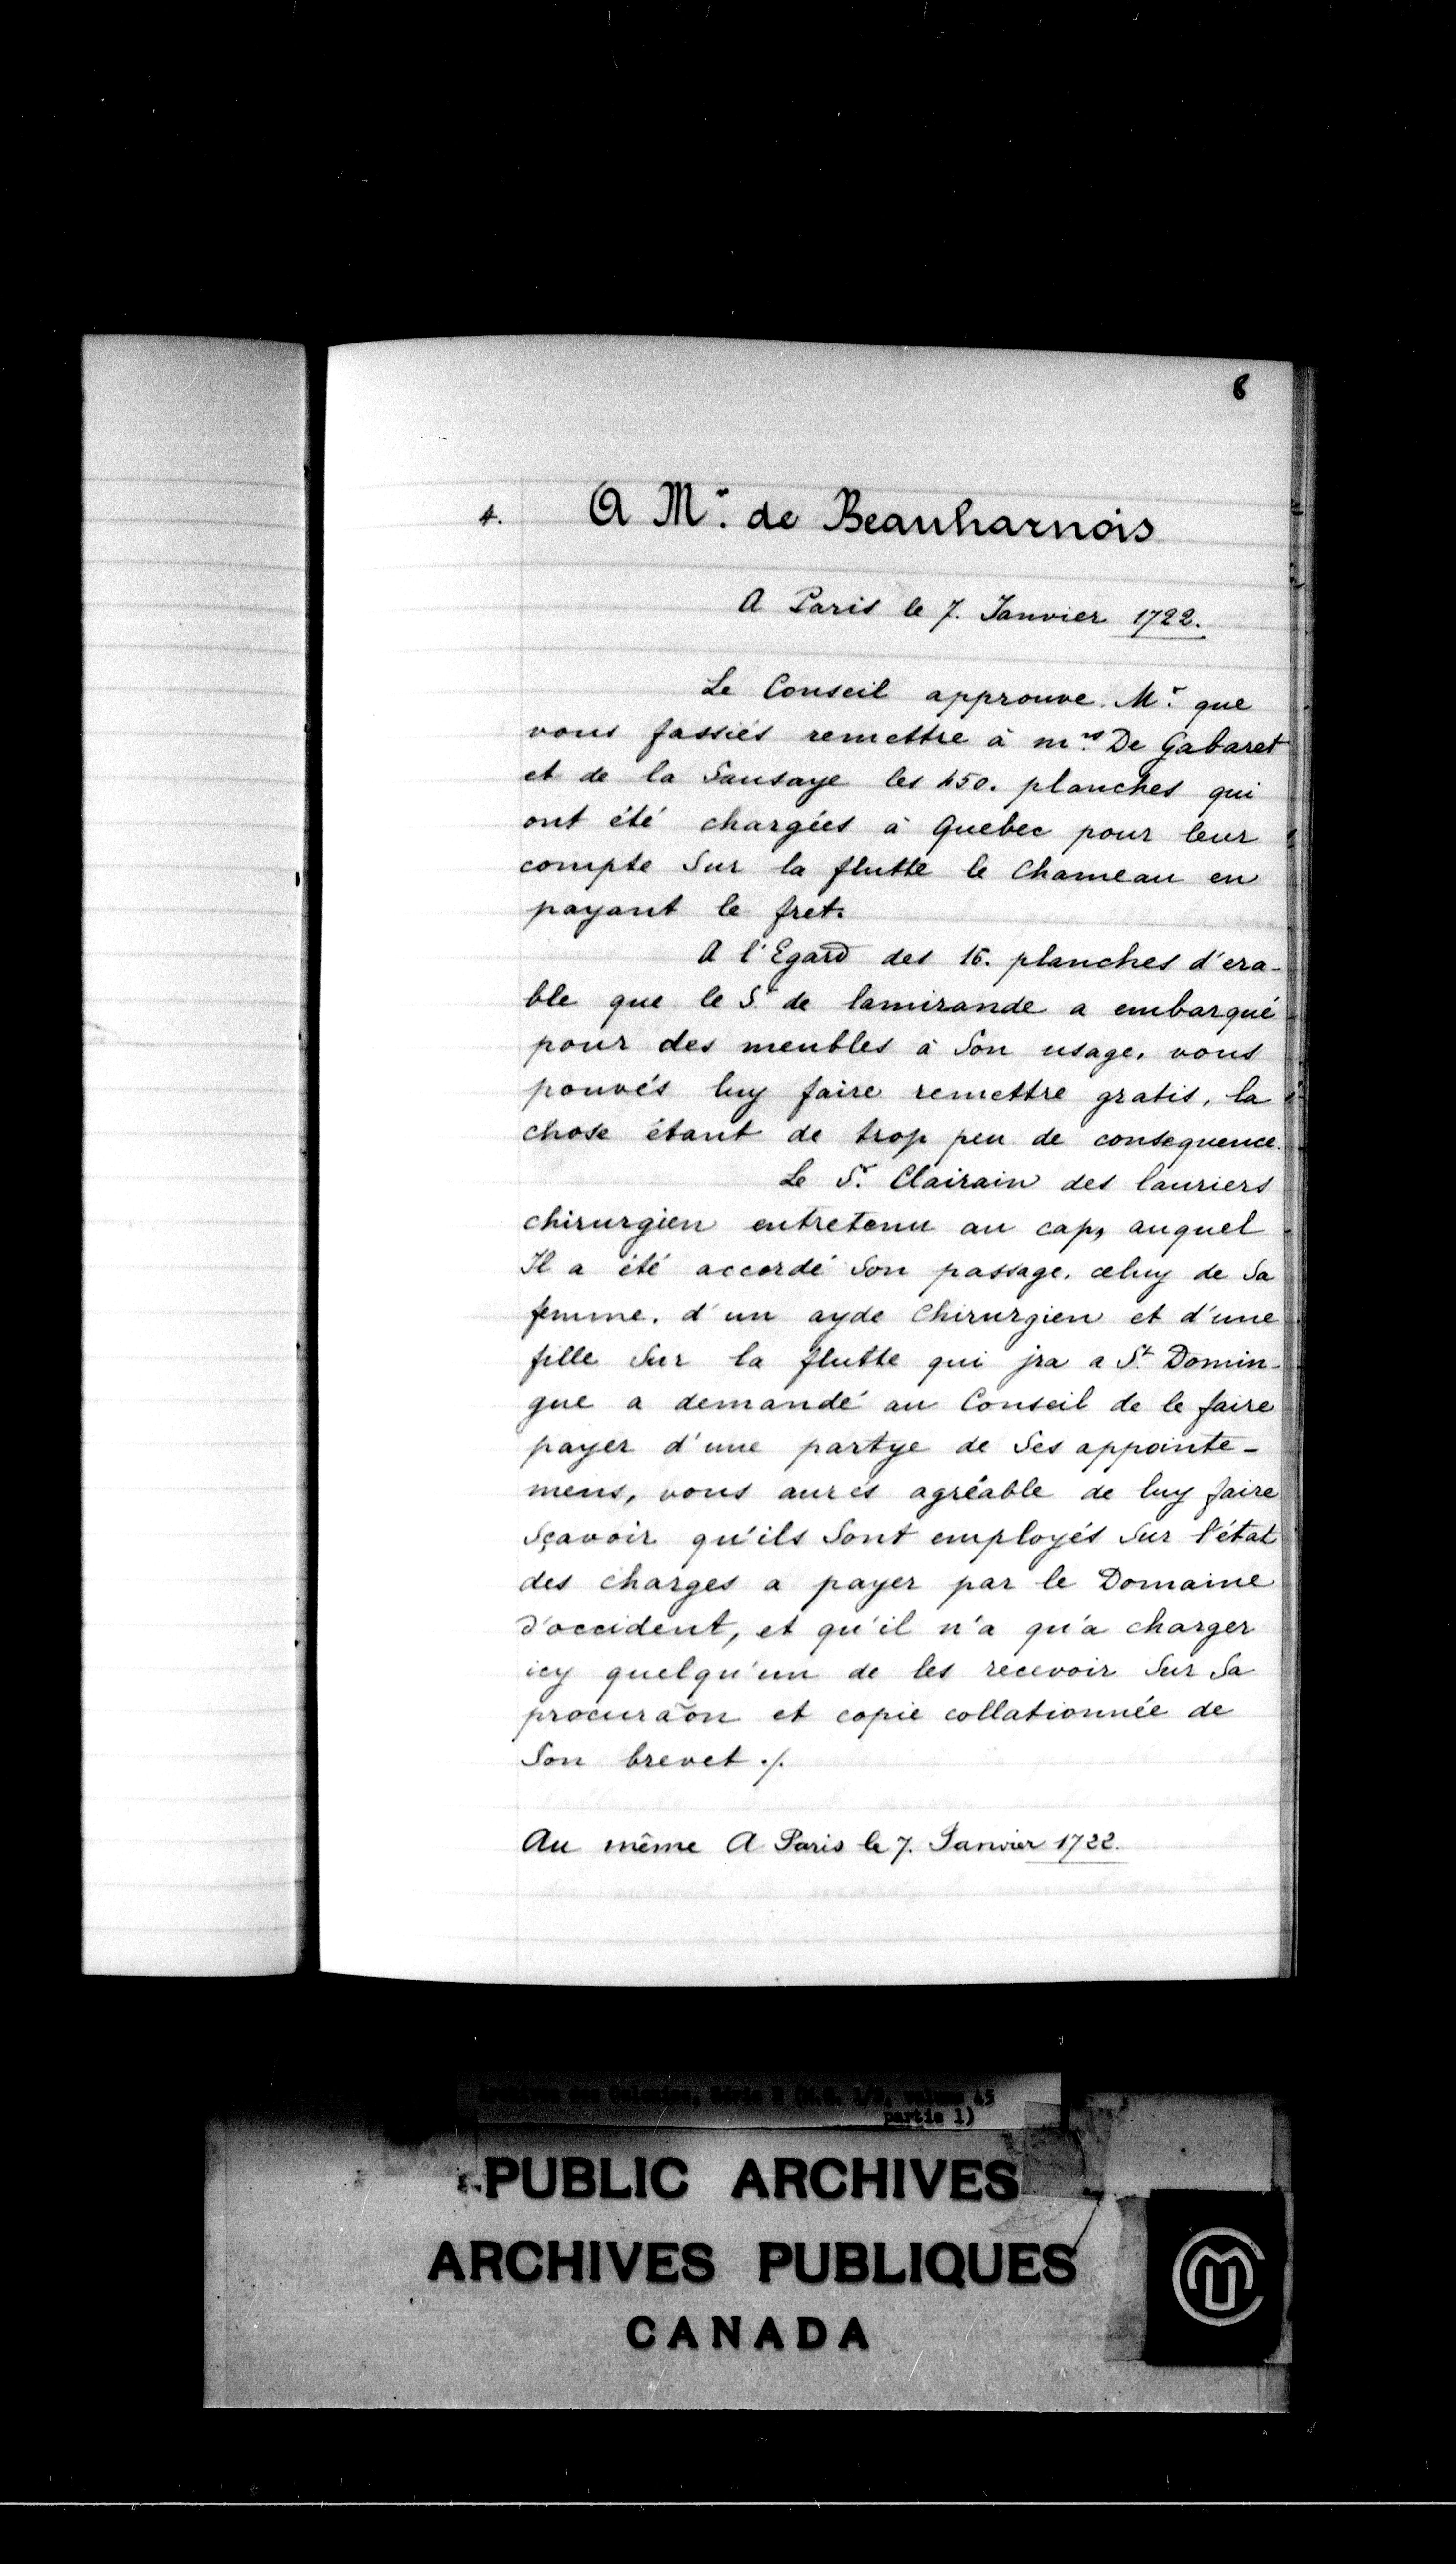 8
4. A Mr. de Beauharnois
A Paris le 7. Janvier 1722.
Le Conseil approuve Mr. que
vous fassiés remettre à mrs. De Gabaret
et de la Sausaye les 450. planches qui
ont été chargées à Quebec pour leur
compte Sur la flutte le Chameau en
payant le fret.
A l'Egard des 16. planches d'era-
ble que le Sr. de lamirande a embarqué
pour des meubles à Son usage, vous
pouvés luy faire remettre gratis, la
chose étant de trop peu de consequence.
Le Sr. Clairain des lauriers
chirurgien entretenu au cap, auquel
Il a été accordé Son passage, celuy de Sa
femme, d'un ayde Chirurgien et d'une
fille Sur la flutte qui jra a St. Domin-
gue a demandé au Conseil de le faire
payer d'une partye de Ses appointe-
mens, vous aurés agréable de luy faire
Sçavoir qu'ils Sont employés Sur l'état
des charges a payer par le Domaine
d'occident, et qu'il n'a qu'a charger
icy quelqu'un de les recevoir Sur Sa
procuraõn et copie collationnée de
Son brevet ./.
Au même A Paris le 7. Janvier 1722.
Colonies, Série B (M.G. 1/B, volume 45
partie 1)
PUBLIC ARCHIVES
ARCHIVES PUBLIQUES
CANADA